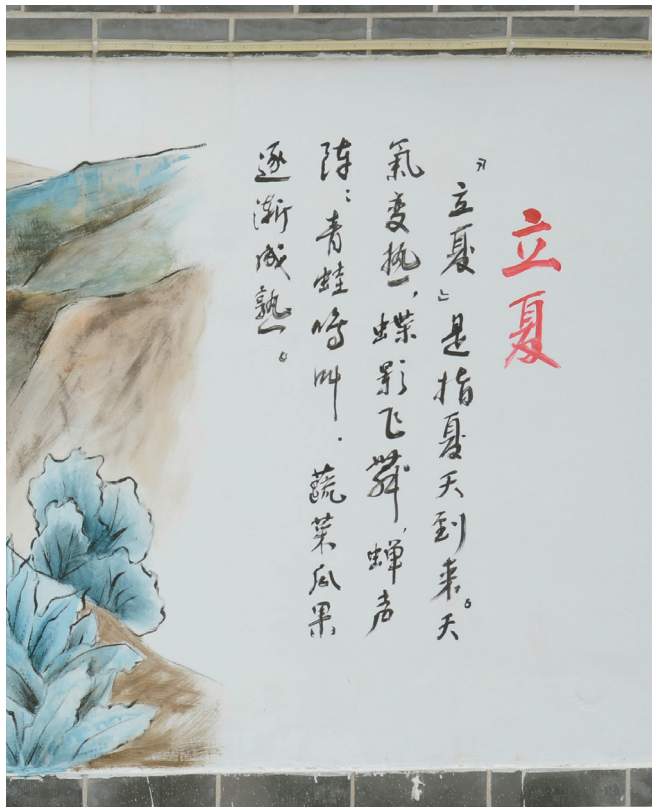 立夏
“立夏”是指夏天到来。天
氣变热，蝶影飞舞，蝉声
阵阵；青蛙鸣叫．蔬菜瓜果
逐渐成熟。